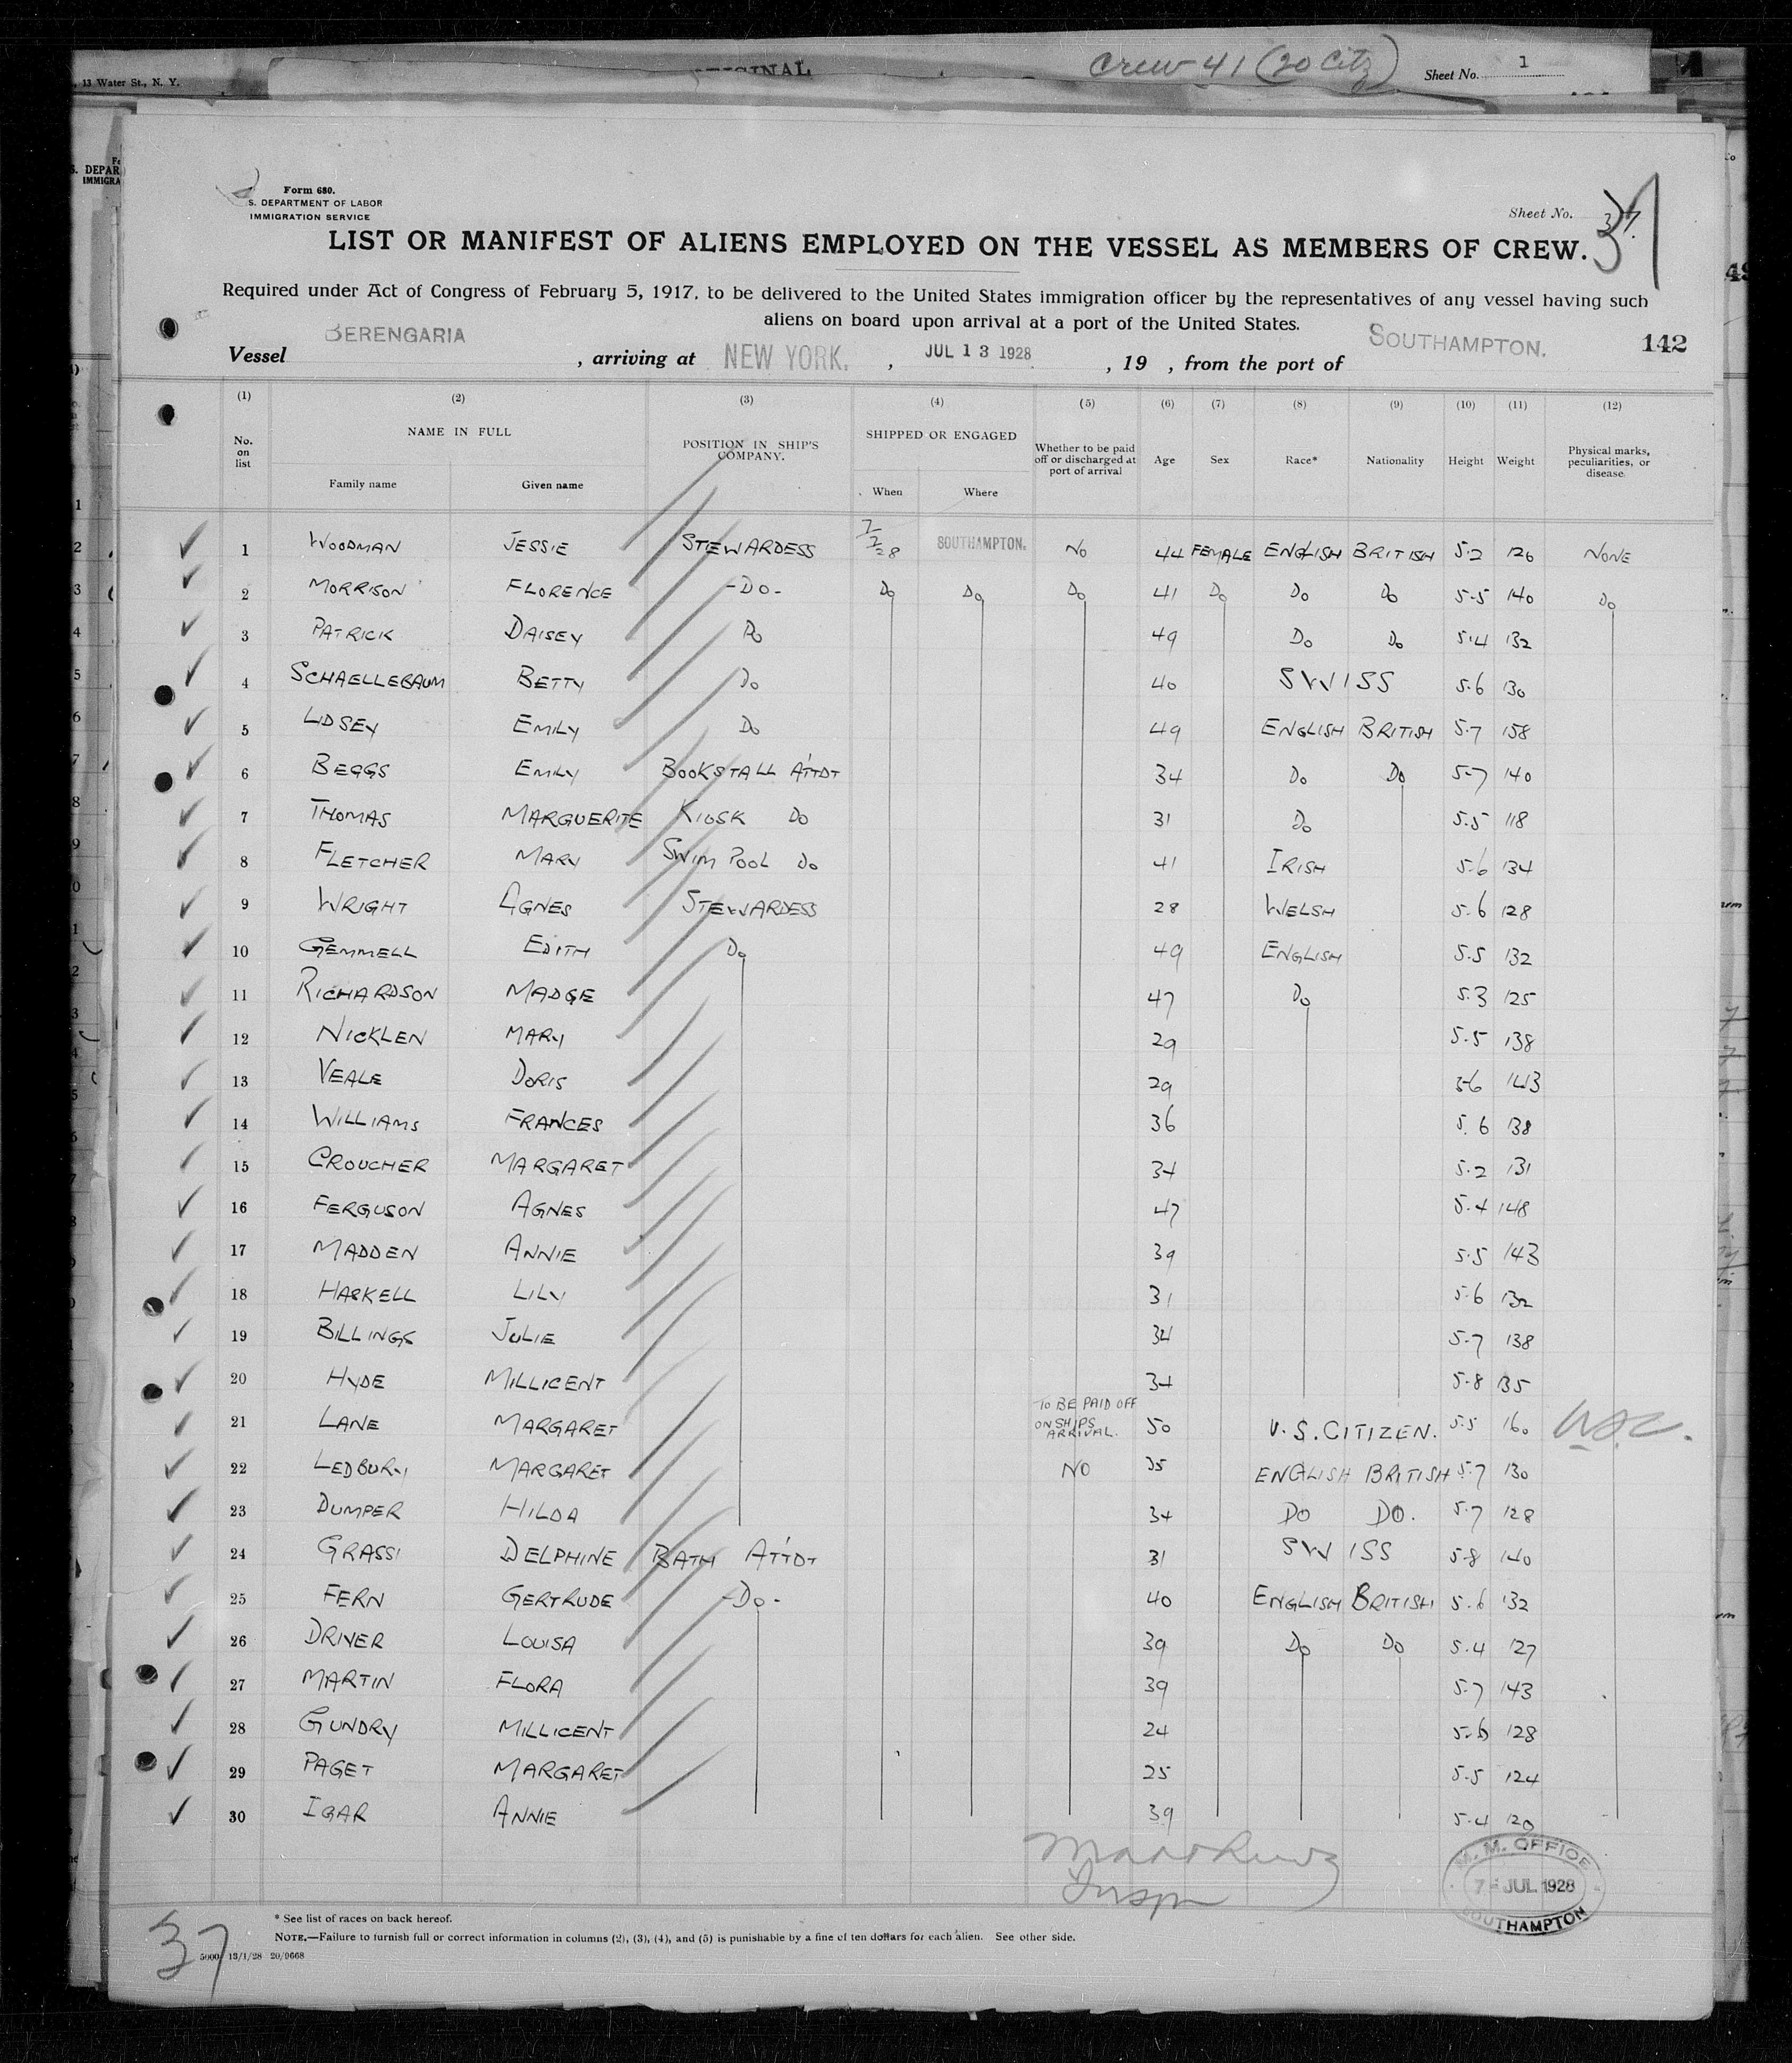 13 Water St., N. Y.
ORIGINAL
Crew 41 (20 Citz)
Sheet No. 1
Form 680.
S. DEPARTMENT OF LABOR
IMMIGRATION SERVICE
Sheet No. 37
LIST OR MANIFEST OF ALIENS EMPLOYED ON THE VESSEL AS MEMBERS OF CREW.
Required under Act of Congress of February 5, 1917, to be delivered to the United States immigration officer by the representatives of any vessel having such
aliens on board upon arrival at a port of the United States.
Vessel BERENGARIA, arriving at NEW YORK., JUL 13 1928, 19 , from the port of SOUTHAMPTON. 142
(1) (2) (3) (4) (5) (6) (7) (8) (9) (10) (11) (12)
No. on list NAME IN FULL POSITION IN SHIP'S COMPANY. SHIPPED OR ENGAGED Whether to be paid off or discharged at port of arrival Age Sex Race* Nationality Height Weight Physical marks, peculiarities, or disease.
Family name Given name When Where
1 WOODMAN JESSIE STEWARDESS 7/7/28 SOUTHAMPTON. NO 44 FEMALE ENGLISH BRITISH 5.2 126 NONE
2 MORRISON FLORENCE -DO- DO DO DO 41 DO DO DO 5-5 140 DO
3 PATRICK DAISEY DO 49 DO DO 5.4 132
4 SCHAELLEBAUM BETTY DO 40 SWISS 5.6 130
5 LIDSEY EMILY DO 49 ENGLISH BRITISH 5.7 158
6 BEGGS EMILY BOOKSTALL ATTDT 34 DO DO 5-7 140
7 THOMAS MARGUERITE KIOSK DO 31 DO 5.5 118
8 FLETCHER MARY SWIM POOL DO 41 IRISH 5.6 134
9 WRIGHT AGNES STEWARDESS 28 WELSH 5.6 128
10 GEMMELL EDITH DO 49 ENGLISH 5.5 132
11 RICHARDSON MADGE 47 DO 5.3 125
12 NICKLEN MARY 29 5.5 138
13 VEALE DORIS 29 5-6 143
14 WILLIAMS FRANCES 36 5.6 138
15 CROUCHER MARGARET 34 5.2 131
16 FERGUSON AGNES 47 5.4 148
17 MADDEN ANNIE 39 5.5 143
18 HASKELL LILY 31 5.6 132
19 BILLINGS JULIE 34 5.7 138
20 HYDE MILLICENT 34 5.8 135
21 LANE MARGARET TO BE PAID OFF ON SHIPS ARRIVAL. 50 U.S. CITIZEN. 5.5 160 USC.
22 LEDBURY MARGARET NO 35 ENGLISH BRITISH 5.7 130
23 DUMPER HILDA 34 DO DO. 5.7 128
24 GRASSI DELPHINE BATH ATTDT 31 SWISS 5.8 140
25 FERN GERTRUDE -DO- 40 ENGLISH BRITISH 5.6 132
26 DRIVER LOUISA 39 DO DO 5.4 127
27 MARTIN FLORA 39 5.7 143
28 GUNDRY MILLICENT 24 5.6 128
29 PAGET MARGARET 25 5.5 124
30 IGAR ANNIE 39 5.4 120
Inspr
M. M. OFFICE
7-JUL 1928
SOUTHAMPTON
* See list of races on back hereof.
NOTE.—Failure to furnish full or correct information in columns (2), (3), (4), and (5) is punishable by a fine of ten dollars for each alien. See other side.
5000 13/1/28 20/9668
37